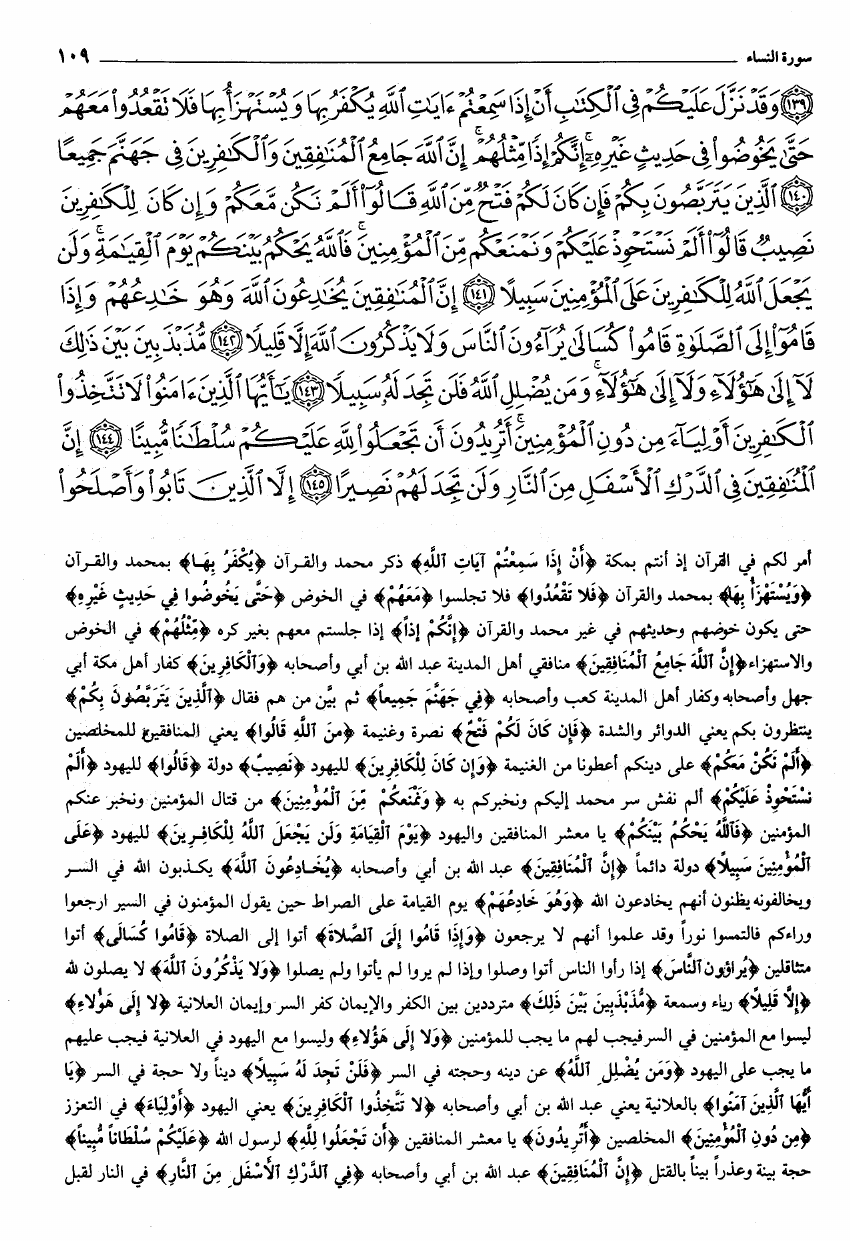 سورة النساء ١٠٩
﴿١٣٩﴾ وَقَدْ نَزَّلَ عَلَيْكُمْ فِي ٱلْكِتَٰبِ أَنْ إِذَا سَمِعْتُمْ ءَايَٰتِ ٱللَّهِ يُكْفَرُ بِهَا وَيُسْتَهْزَأُ بِهَا فَلَا تَقْعُدُوا۟ مَعَهُمْ
حَتَّىٰ يَخُوضُوا۟ فِي حَدِيثٍ غَيْرِهِۦٓ ۚ إِنَّكُمْ إِذًا مِّثْلُهُمْ ۗ إِنَّ ٱللَّهَ جَامِعُ ٱلْمُنَٰفِقِينَ وَٱلْكَٰفِرِينَ فِي جَهَنَّمَ جَمِيعًا
﴿١٤٠﴾ ٱلَّذِينَ يَتَرَبَّصُونَ بِكُمْ فَإِن كَانَ لَكُمْ فَتْحٌ مِّنَ ٱللَّهِ قَالُوٓا۟ أَلَمْ نَكُن مَّعَكُمْ وَإِن كَانَ لِلْكَٰفِرِينَ
نَصِيبٌ قَالُوٓا۟ أَلَمْ نَسْتَحْوِذْ عَلَيْكُمْ وَنَمْنَعْكُم مِّنَ ٱلْمُؤْمِنِينَ ۚ فَٱللَّهُ يَحْكُمُ بَيْنَكُمْ يَوْمَ ٱلْقِيَٰمَةِ ۗ وَلَن
يَجْعَلَ ٱللَّهُ لِلْكَٰفِرِينَ عَلَى ٱلْمُؤْمِنِينَ سَبِيلًا ﴿١٤١﴾ إِنَّ ٱلْمُنَٰفِقِينَ يُخَٰدِعُونَ ٱللَّهَ وَهُوَ خَٰدِعُهُمْ وَإِذَا
قَامُوٓا۟ إِلَى ٱلصَّلَوٰةِ قَامُوا۟ كُسَالَىٰ يُرَآءُونَ ٱلنَّاسَ وَلَا يَذْكُرُونَ ٱللَّهَ إِلَّا قَلِيلًا ﴿١٤٢﴾ مُّذَبْذَبِينَ بَيْنَ ذَٰلِكَ
لَآ إِلَىٰ هَٰٓؤُلَآءِ وَلَآ إِلَىٰ هَٰٓؤُلَآءِ ۚ وَمَن يُضْلِلِ ٱللَّهُ فَلَن تَجِدَ لَهُۥ سَبِيلًا ﴿١٤٣﴾ يَٰٓأَيُّهَا ٱلَّذِينَ ءَامَنُوا۟ لَا تَتَّخِذُوا۟
ٱلْكَٰفِرِينَ أَوْلِيَآءَ مِن دُونِ ٱلْمُؤْمِنِينَ ۚ أَتُرِيدُونَ أَن تَجْعَلُوا۟ لِلَّهِ عَلَيْكُمْ سُلْطَٰنًا مُّبِينًا ﴿١٤٤﴾ إِنَّ
ٱلْمُنَٰفِقِينَ فِي ٱلدَّرْكِ ٱلْأَسْفَلِ مِنَ ٱلنَّارِ وَلَن تَجِدَ لَهُمْ نَصِيرًا ﴿١٤٥﴾ إِلَّا ٱلَّذِينَ تَابُوا۟ وَأَصْلَحُوا۟
أمر لكم في القرآن إذ أنتم بمكة ﴿أَنْ إِذَا سَمِعْتُمْ آيَاتِ اللَّهِ﴾ ذكر محمد والقرآن ﴿يُكْفَرُ بِهَا﴾ بمحمد والقرآن
﴿وَيُسْتَهْزَأُ بِهَا﴾ بمحمد والقرآن ﴿فَلا تَقْعُدُوا﴾ فلا تجلسوا ﴿مَعَهُمْ﴾ في الخوض ﴿حَتَّى يَخُوضُوا فِي حَدِيثٍ غَيْرِهِ﴾
حتى يكون خوضهم وحديثهم في غير محمد والقرآن ﴿إِنَّكُمْ إِذاً﴾ إذا جلستم معهم بغير كره ﴿مِّثْلُهُمْ﴾ في الخوض
والاستهزاء ﴿إِنَّ اللَّهَ جَامِعُ الْمُنَافِقِينَ﴾ منافقي أهل المدينة عبد الله بن أبي وأصحابه ﴿وَالْكَافِرِينَ﴾ كفار أهل مكة أبي
جهل وأصحابه وكفار أهل المدينة كعب وأصحابه ﴿فِي جَهَنَّمَ جَمِيعاً﴾ ثم بيَّن من هم فقال ﴿الَّذِينَ يَتَرَبَّصُونَ بِكُمْ﴾
ينتظرون بكم يعني الدوائر والشدة ﴿فَإِن كَانَ لَكُمْ فَتْحٌ﴾ نصرة وغنيمة ﴿مِنَ اللَّهِ قَالُوا﴾ يعني المنافقين للمخلصين
﴿أَلَمْ نَكُنْ مَعَكُمْ﴾ على دينكم أعطونا من الغنيمة ﴿وَإِن كَانَ لِلْكَافِرِينَ﴾ لليهود ﴿نَصِيبٌ﴾ دولة ﴿قَالُوا﴾ لليهود ﴿أَلَمْ
نَسْتَحْوِذْ عَلَيْكُمْ﴾ ألم نفش سر محمد إليكم ونخبركم به ﴿وَنَمْنَعكُم مِّنَ الْمُؤْمِنِينَ﴾ من قتال المؤمنين ونخبر عنكم
المؤمنين ﴿فَاللَّهُ يَحْكُمُ بَيْنَكُمْ﴾ يا معشر المنافقين واليهود ﴿يَوْمَ الْقِيَامَةِ وَلَن يَجْعَلَ اللَّهُ لِلْكَافِرِينَ﴾ لليهود ﴿عَلَى
الْمُؤْمِنِينَ سَبِيلاً﴾ دولة دائماً ﴿إِنَّ الْمُنَافِقِينَ﴾ عبد الله بن أبي وأصحابه ﴿يُخَادِعُونَ اللَّهَ﴾ يكذبون الله في السر
ويخالفونه يظنون أنهم يخادعون الله ﴿وَهُوَ خَادِعُهُمْ﴾ يوم القيامة على الصراط حين يقول المؤمنون في السير ارجعوا
وراءكم فالتمسوا نوراً وقد علموا أنهم لا يرجعون ﴿وَإِذَا قَامُوا إِلَى الصَّلاةِ﴾ أتوا إلى الصلاة ﴿قَامُوا كُسَالَى﴾ أتوا
متثاقلين ﴿يُراؤون النَّاسَ﴾ إذا رأوا الناس أتوا وصلوا وإذا لم يروا لم يأتوا ولم يصلوا ﴿وَلا يَذْكُرُونَ اللَّهَ﴾ لا يصلون لله
﴿إِلَّا قَلِيلاً﴾ رياء وسمعة ﴿مُّذَبْذَبِينَ بَيْنَ ذَلِكَ﴾ مترددين بين الكفر والإيمان كفر السر وإيمان العلانية ﴿لا إِلَى هَؤُلاءِ﴾
ليسوا مع المؤمنين في السر فيجب لهم ما يجب للمؤمنين ﴿وَلا إِلَى هَؤُلاءِ﴾ وليسوا مع اليهود في العلانية فيجب عليهم
ما يجب على اليهود ﴿وَمَن يُضْلِلِ اللَّهُ﴾ عن دينه وحجته في السر ﴿فَلَنْ تَجِدَ لَهُ سَبِيلاً﴾ ديناً ولا حجة في السر ﴿يَا
أَيُّهَا الَّذِينَ آمَنُوا﴾ بالعلانية يعني عبد الله بن أبي وأصحابه ﴿لا تَتَّخِذُوا الْكَافِرِينَ﴾ يعني اليهود ﴿أَوْلِيَاءَ﴾ في التعزز
﴿مِن دُونِ الْمُؤْمِنِينَ﴾ المخلصين ﴿أَتُرِيدُونَ﴾ يا معشر المنافقين ﴿أَن تَجْعَلُوا لِلَّهِ﴾ لرسول الله ﴿عَلَيْكُمْ سُلْطَاناً مُّبِيناً﴾
حجة بينة وعذراً بيناً بالقتل ﴿إِنَّ الْمُنَافِقِينَ﴾ عبد الله بن أبي وأصحابه ﴿فِي الدَّرْكِ الأَسْفَلِ مِنَ النَّارِ﴾ في النار لقبل